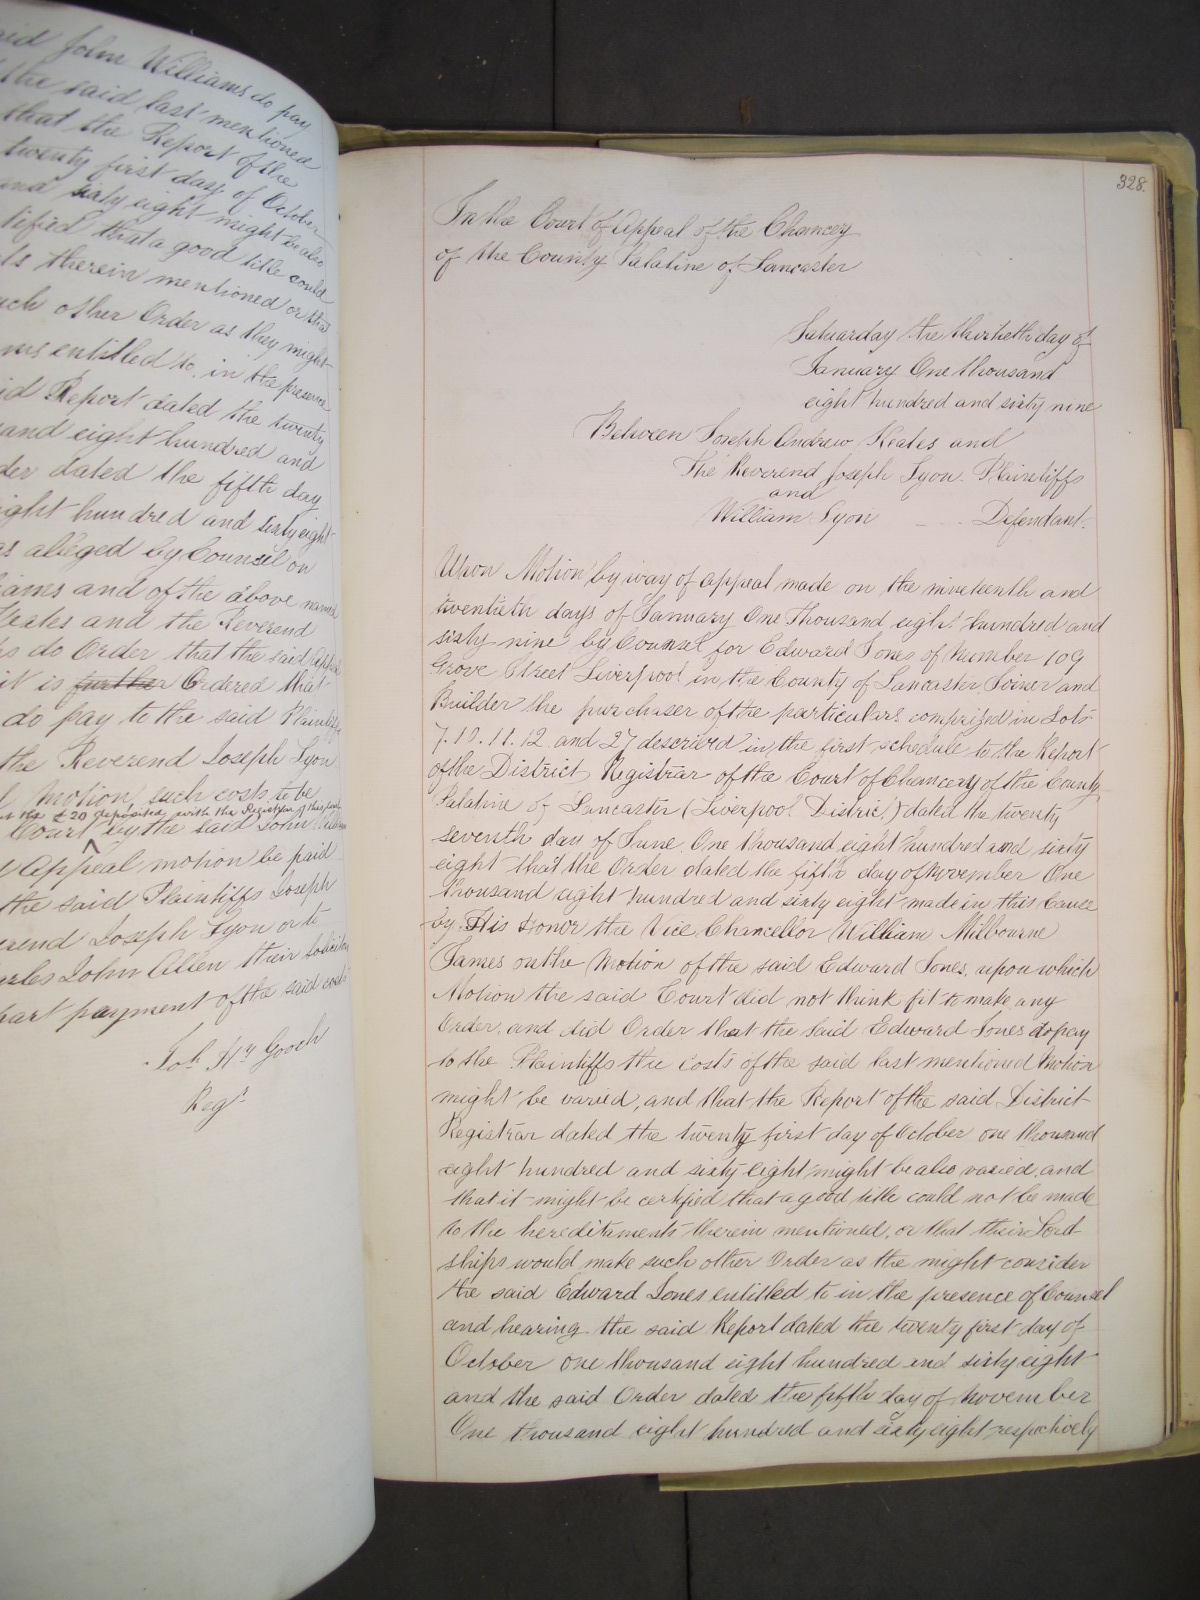 said John Williams do pay
the said last mentioned
that the Report of the
twenty first day of October
and sixty eight might be also
tified that a good title could
ts therein mentioned or that
uch other Order as they might
ms entitled to, in the presence
id Report dated the twenty
and eight hundred and
der dated the fifth day
ight hundred and sixty eight
as alleged by Counsel on
iams and of the above named
Keates and the Reverend
ps do Order that the said
it is further Ordered that
do pay to the said Plaintiffs
the Reverend Joseph Lyon
motion, such costs to be
the £20 deposited with the Registrar of this
Court by the said John
Appeal motion be paid
the said Plaintiffs Joseph
erend Joseph Lyon or to
arles John Allen their Solicitor
part payment of the said costs
Jos. Hy Gooch
Regr.
328.
In the Court of Appeal of the Chancey
of the County Palatine of Lancaster
Saturday the thirtieth day of
January One thousand
eight hundred and sixty nine
Between Joseph Andrew Keates and
The Reverend Joseph Lyon. Plaintiffs
and
William Lyon Defendant.
Upon Motion by way of appeal made on the nineteenth and
twentieth days of January One Thousand eight hundred and
sixty nine by Counsel for Edward Jones of Number 109
Grove Street Liverpool in the County of Lancaster Joiner and
Builder the purchaser of the particulars comprized in Lots
7. 10. 11. 12. and 27 described in the first schedule to the Report
of the District Registrar of the Court of Chancery of the County
Palatine of Lancaster (Liverpool District) dated the twenty
seventh day of June One thousand eight hundred and sixty
eight that the Order dated the fifth day of November One
thousand eight hundred and sixty eight made in this Cause
by His Honor the Vice Chancellor William Milbourne
James on the Motion of the said Edward Jones, upon which
Motion the said Court did not think fit to make any
Order, and did Order that the said Edward Jones do pay
to the Plaintiffs the costs of the said last mentioned Motion
might be varied, and that the Report of the said District
Registrar dated the twenty first day of October one thousand
eight hundred and sixty eight might be also varied, and
that it might be certified that a good title could not be made
to the hereditaments therein mentioned, or that their Lord
ships would make such other Order as the might consider
the said Edward Jones entitled to in the presence of Counsel
and hearing the said Report dated the twenty first day of
October one thousand eight hundred and sixty eight
and the said Order dated the fifth day of November
One thousand eight hundred and sixty eight respectively